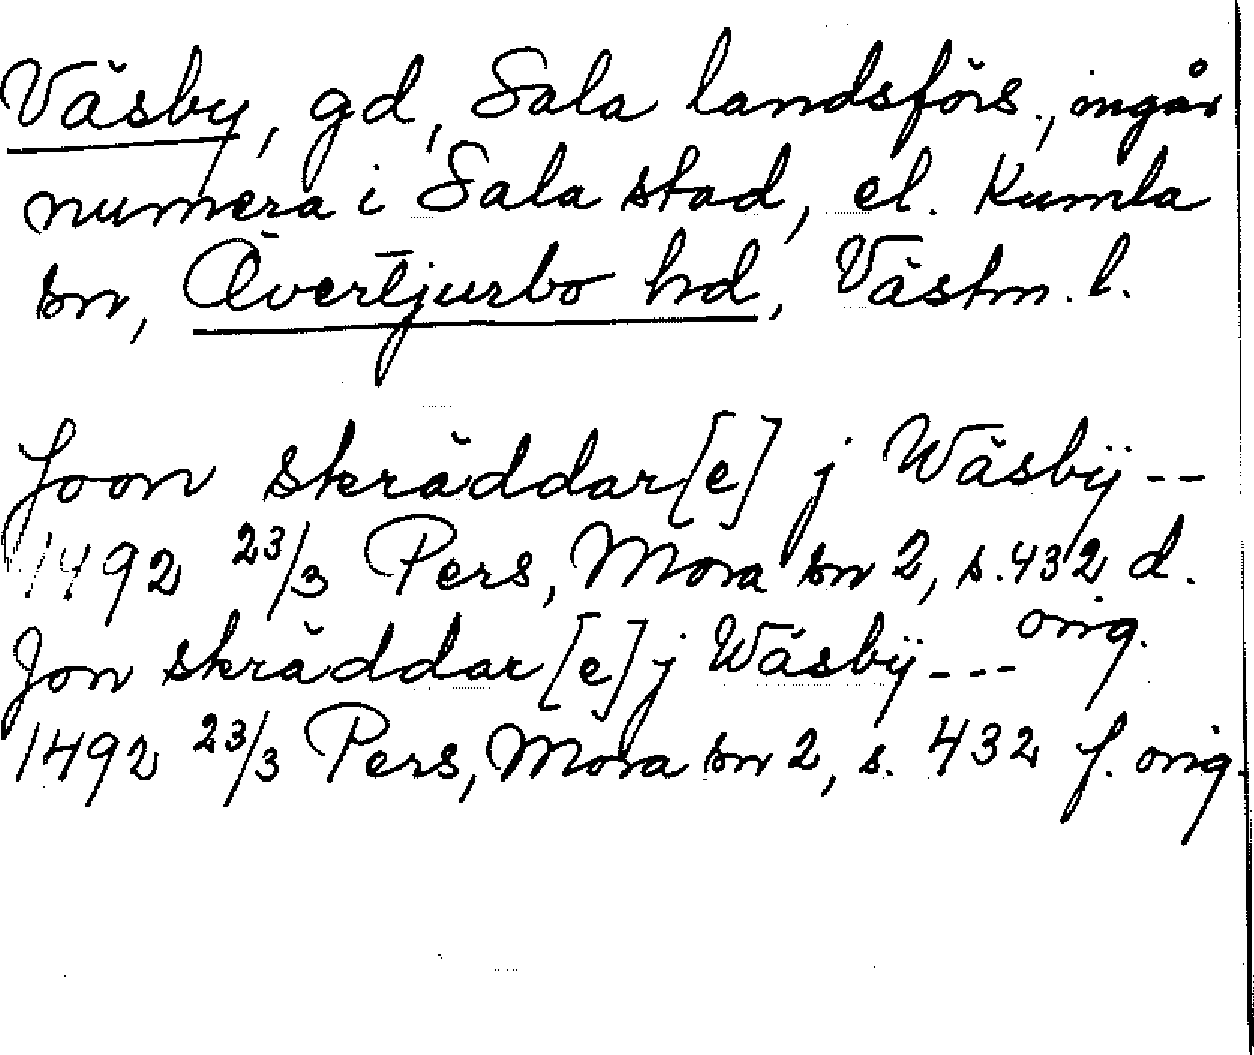 Väsby, gd, Sala landsförs., ingår
numera i Sala stad, el. Kumla
sn, Övertjurbo hd, Västm. l.
Joon skräddar[e] j Wäsbÿ --
1492 23/3 Pers, Mora sn 2, s. 432 d.
orig.
Jon skräddar[e] j Wäsbÿ ---
1492 23/3 Pers, Mora sn 2, s. 432 f. orig.